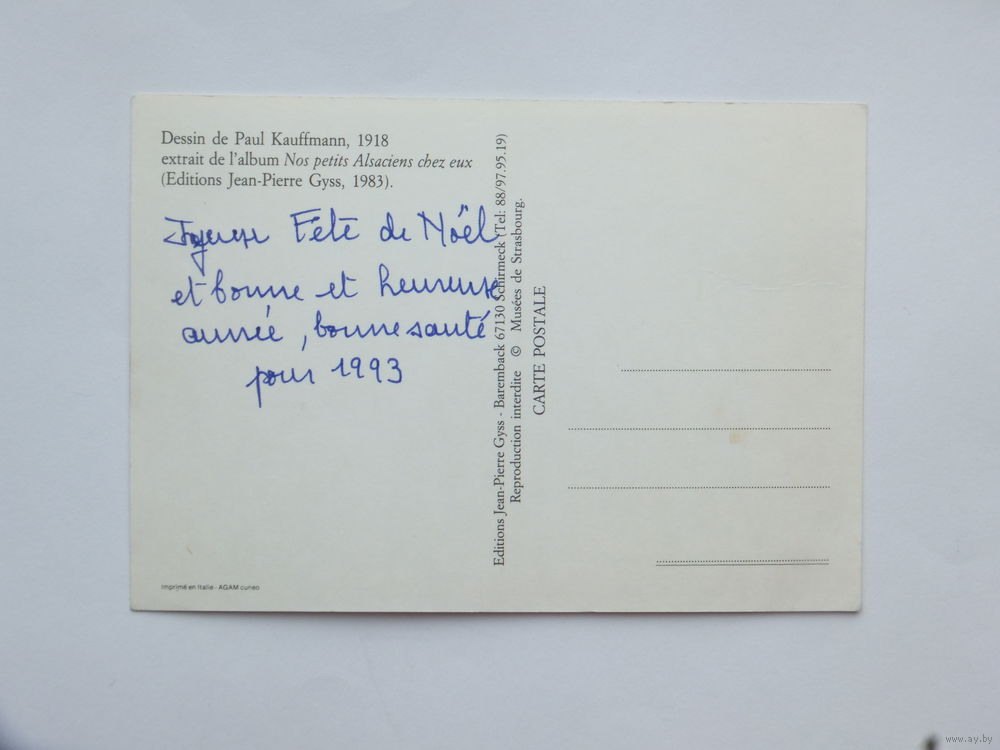 Dessin de Paul Kauffmann, 1918
extrait de l'album Nos petits Alsaciens chez eux
(Editions Jean-Pierre Gyss, 1983).
Joyeuse Fête de Noël
et bonne et heureuse
année, bonne santé
pour 1993
Imprimé en Italie - AGAM cuneo
Editions Jean-Pierre Gyss - Baremback 67130 Schirmeck (Tel: 88/97.95.19)
Reproduction interdite © Musées de Strasbourg.
CARTE POSTALE
www.ay.by